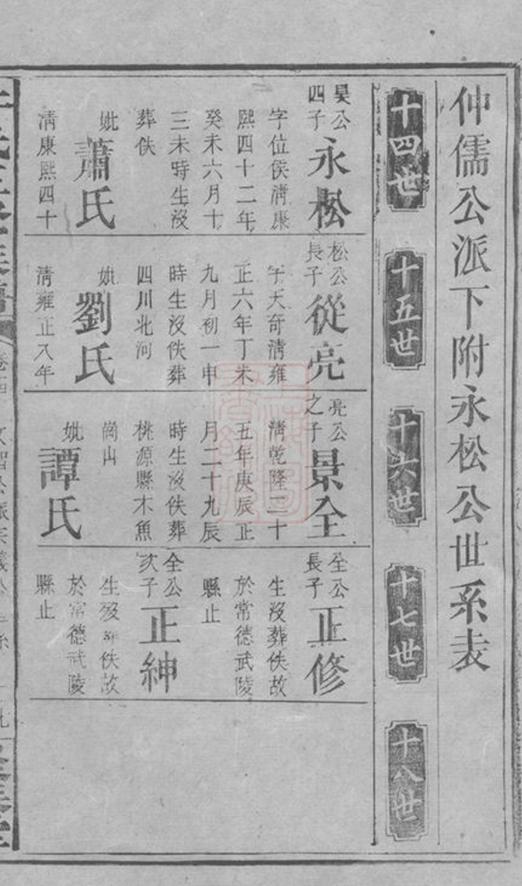 仲儒公派下附永松公世系表
十四世
十五世
十六世
十七世
十八世
昊公
四子
永松
字位侯清康
熙四十二年
癸未六月十
三未時生沒
葬佚
妣蕭氏
清康熙四十
松公
長子
從亮
字天奇清雍
正六年丁未
九月初一申
時生沒佚葬
四川北河
妣劉氏
清雍正八年
亮公
之子
景全
清乾隆二十
五年庚辰正
月二十九辰
時生沒佚葬
桃源縣木魚
崗山
妣譚氏
全公
長子
正修
生沒葬佚故
於常德武陵
縣止
全公
次子
正紳
生沒葬佚故
於常德武陵
縣止